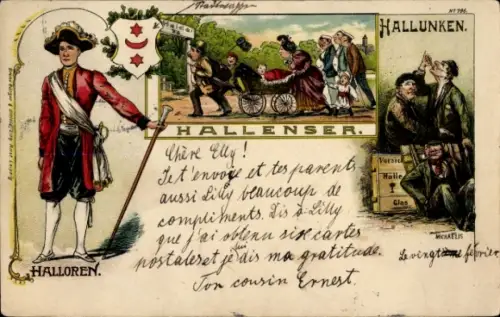 Stadtwappen
Nº 786.
HALLUNKEN.
HALLENSER.
HALLOREN.
Halle
Glas
Chère Elly!
Je t'envoye et tes parents
aussi Lilly beaucoup de
compliments. Dis à Lilly
que j'ai obtenu six cartes
postales et je dis ma gratitude.
Ton cousin Ernest.
Le vingtième février